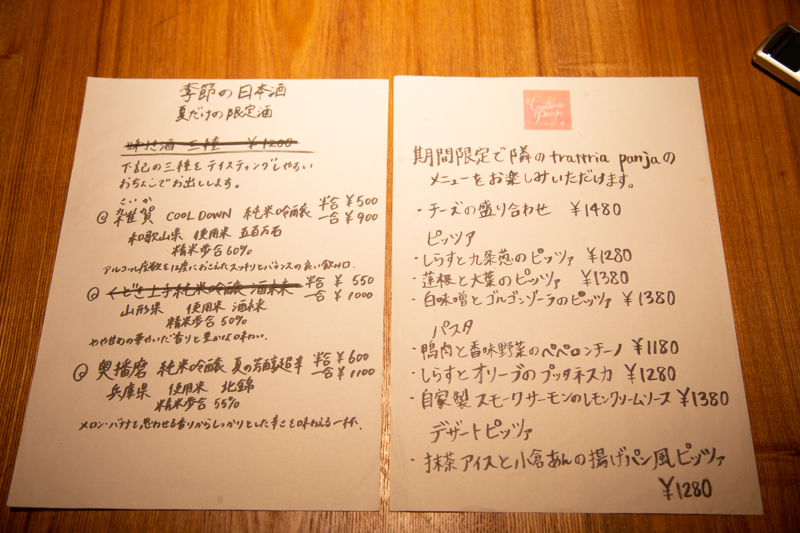 季節の日本酒
夏だけの限定酒
唎き酒 三種 ¥1200
下記の三種をテイスティングしやすい
おちょこでお出しします。
さいか
雑賀 COOL DOWN 純米吟醸 半合 ¥500
一合 ¥900
和歌山県 使用米 五百万石
精米歩合 60%
アルコール度数を12度におさえたスッキリとバランスの良い飲み口。
くどき上手 純米吟醸 酒未来 半合 ¥550
一合 ¥1000
山形県 使用米 酒未来
精米歩合 50%
やや甘めの華やいだ香りと豊かな味わい。
奥播磨 純米吟醸 夏の芳醇超辛 半合 ¥600
一合 ¥1100
兵庫県 使用米 北錦
精米歩合 55%
メロン・バナナを思わせる香りからしっかりとした辛さを味わえる一杯。
期間限定で隣のtrattria panjaの
メニューをお楽しみいただけます。
・チーズの盛り合わせ ¥1480
ピッツァ
・しらすと九条葱のピッツァ ¥1280
・蓮根と大葉のピッツァ ¥1380
・白味噌とゴルゴンゾーラのピッツァ ¥1380
パスタ
・鴨肉と香味野菜のペペロンチーノ ¥1180
・しらすとオリーブのプッタネスカ ¥1280
・自家製スモークサーモンのレモンクリームソース ¥1380
デザートピッツァ
・抹茶アイスと小倉あんの揚げパン風ピッツァ
¥1280